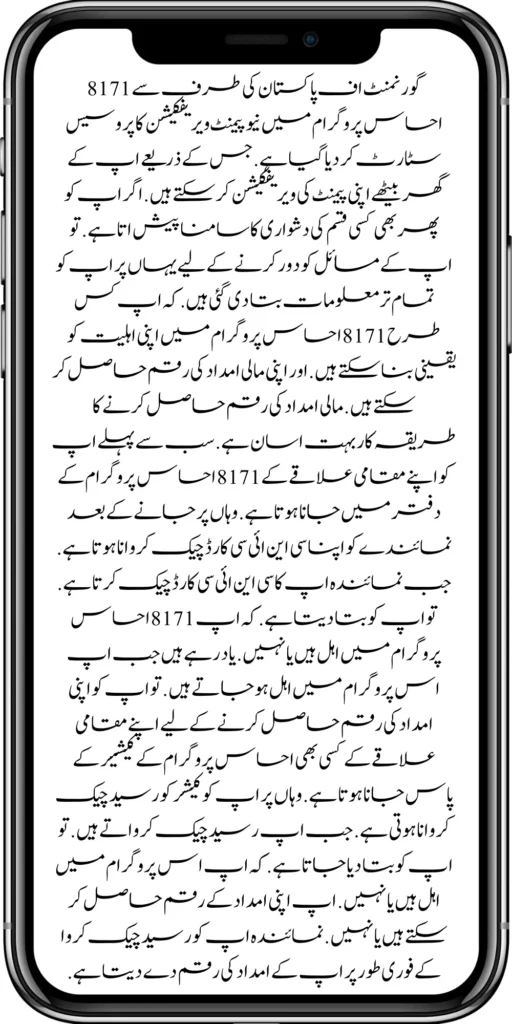 گورنمنٹ اف پاکستان کی طرف سے 8171
احساس پروگرام میں نیو پیمنٹ ویریفکیشن کا پروسیس
سٹارٹ کر دیا گیا ہے. جس کے ذریعے اپ کے
گھر بیٹھے اپنی پیمنٹ کی ویریفکیشن کر سکتے ہیں. اگر اپ کو
پھر بھی کسی قسم کی دشواری کا سامنا پیش اتا ہے. تو
اپ کے مسائل کو دور کرنے کے لیے یہاں پر اپ کو
تمام تر معلومات بتا دی گئی ہیں. کہ اپ کس
طرح 8171 احساس پروگرام میں اپنی اہلیت کو
یقینی بنا سکتے ہیں. اور اپنی مالی امداد کی رقم حاصل کر
سکتے ہیں. مالی امداد کی رقم حاصل کرنے کا
طریقہ کار بہت اسان ہے. سب سے پہلے اپ
کو اپنے مقامی علاقے کے 8171 احساس پروگرام کے
دفتر میں جانا ہوتا ہے. وہاں پر جانے کے بعد
نمائندے کو اپنا سی این ائی سی کارڈ چیک کروانا ہوتا ہے.
جب نمائندہ اپ کا سی این ائی سی کارڈ چیک کرتا ہے.
تو اپ کو بتا دیتا ہے. کہ اپ 8171 احساس
پروگرام میں اہل ہیں یا نہیں. یاد رہے ہیں جب اپ
اس پروگرام میں اہل ہو جاتے ہیں. تو اپ کو اپنی
امداد کی رقم حاصل کرنے کے لیے اپنے مقامی
علاقے کے کسی بھی احساس پروگرام کے کیشیر کے
پاس جانا ہوتا ہے. وہاں پر اپ کو کیشر کو رسید چیک
کروانا ہوتی ہے. جب اپ رسید چیک کرواتے ہیں. تو
اپ کو بتا دیا جاتا ہے. کہ اپ اس پروگرام میں
اہل ہیں یا نہیں. اپ اپنی امداد کے رقم حاصل کر
سکتے ہیں یا نہیں. نمائندہ اپ کو رسید چیک کروا
کے فوری طور پر اپ کے امداد کی رقم دے دیتا ہے.